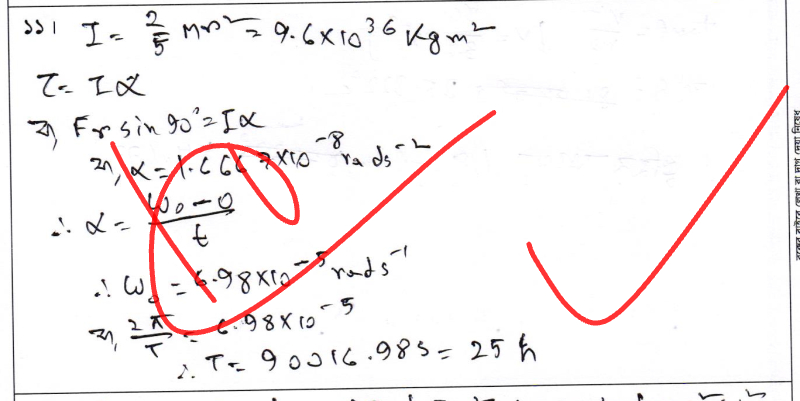 ১১। I = 2/5 Mr² = 9.6×10³⁶ Kgm²
τ = Iα
বা, Fr sin 90° = Iα
বা, α = 1.6667×10⁻⁸ rads⁻²
∴ α = (ω₀ - 0)/t
∴ ω₀ = 6.98×10⁻⁵ rads⁻¹
বা, 2π/T = 6.98×10⁻⁵
∴ T = 90016.98s = 25 h